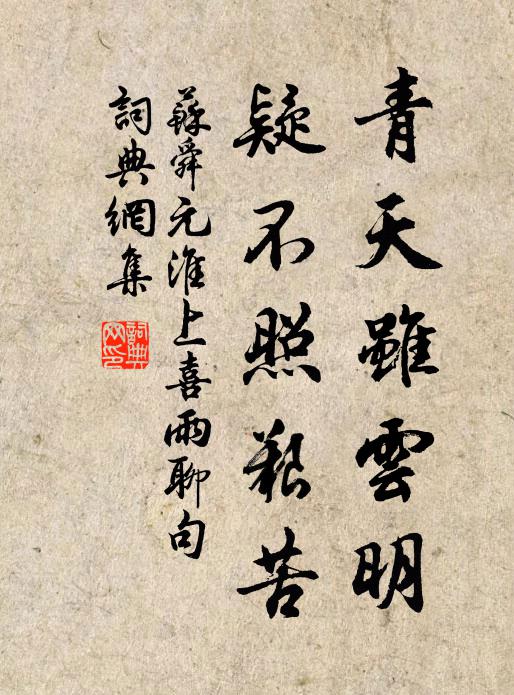 青天雖雲明
疑不照艱苦
蘇舜元淮上喜雨聊句
詞典網集
詞典网印